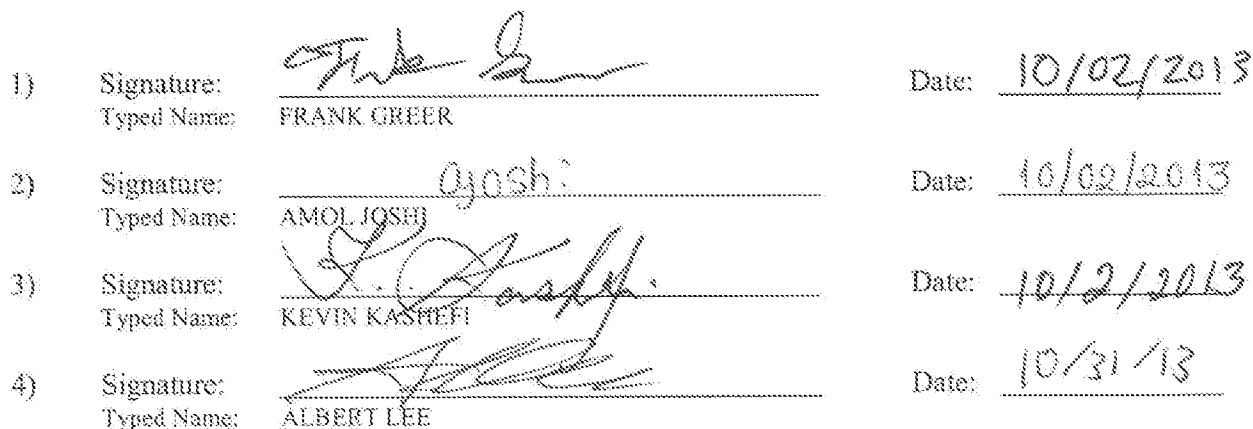 1) Signature: Date: 10/02/2013
Typed Name: FRANK GREER
2) Signature: ajoshi Date: 10/02/2013
Typed Name: AMOL JOSHI
3) Signature: Date: 10/2/2013
Typed Name: KEVIN KASHEFI
4) Signature: Date: 10/31/13
Typed Name: ALBERT LEE